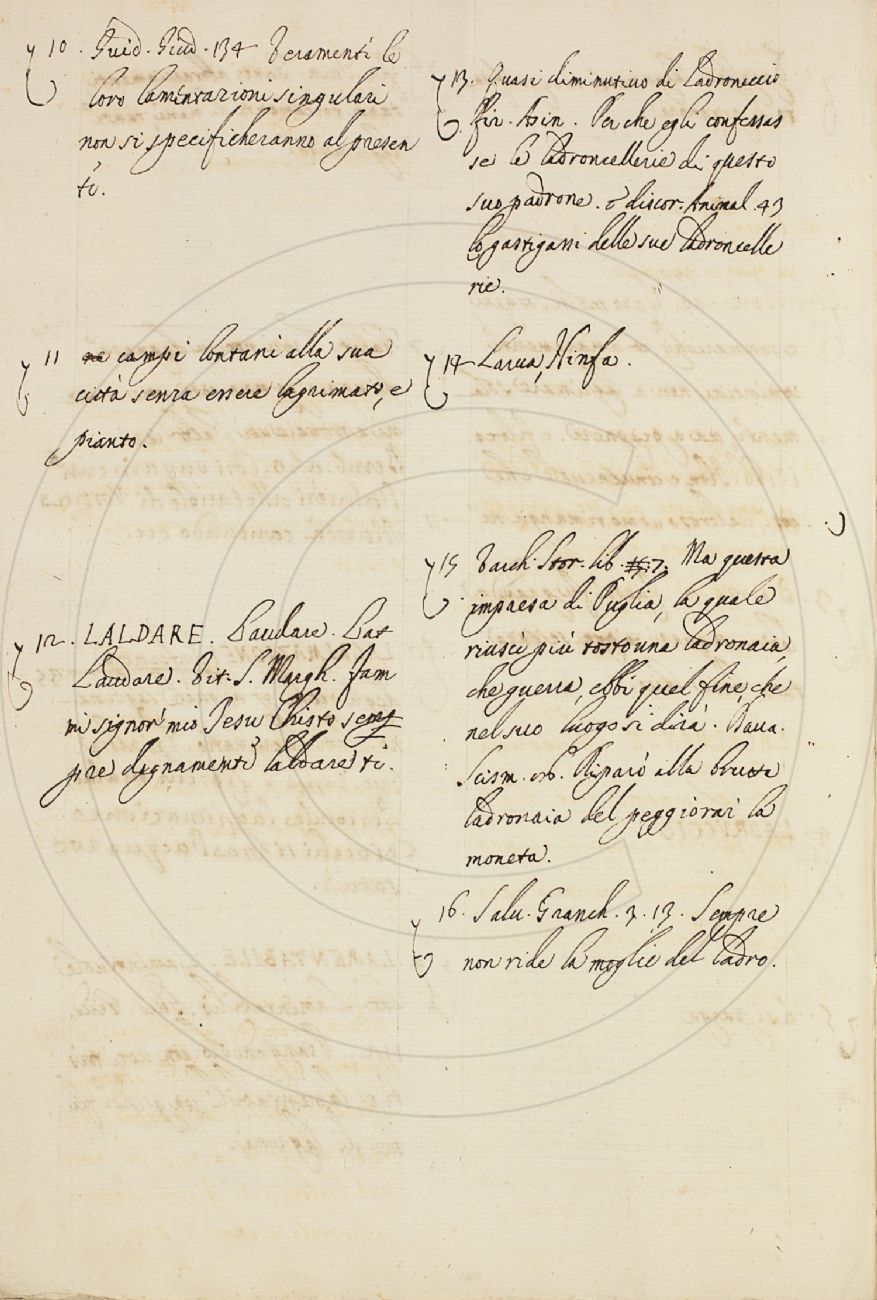 10. Guid. Giud. 134 Veramente le
loro lamentazioni singulari
non si specificheranno al presen
te.
11 ne campi lontani alla sua
città senza essere lagrimato, e
pianto.
12. LALDARE. Laudare. Lat
Laudare. Vit. S. Margh. Fam
mi signor mio Jesu Christo sem
pre degnamente laldare ti.
13. Quasi diminutivo di Ladroneccio
Fir. Asin. Perche egli confessas
se le ladroncellerie di questo
suo padrone. e discor. Animal. 43
lo gastigassi delle sue ladroncelle
rie.
14 Larva, Ninfa.
15 Varch. Stor. lib. 7. Ma questa
impresa di Puglia, la quale
riuscì più tosto una ladronaia,
che guerra, ebbi quel fine, che
nel suo luogo si dirà. Dava.
Scism. Riparò alla brutta
ladronaia del peggiorar la
moneta.
16. Salv. Granch. 3. 13. Sempre
non ride la moglie del ladro.